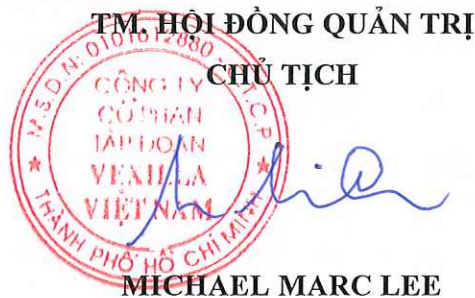 TM. HỘI ĐỒNG QUẢN TRỊ
CHỦ TỊCH
M.S.D.N: 0101612880 C.T.C.P
CÔNG TY
CỔ PHẦN
TẬP ĐOÀN
VEXILLA
VIỆT NAM
THÀNH PHỐ HỒ CHÍ MINH
MICHAEL MARC LEE